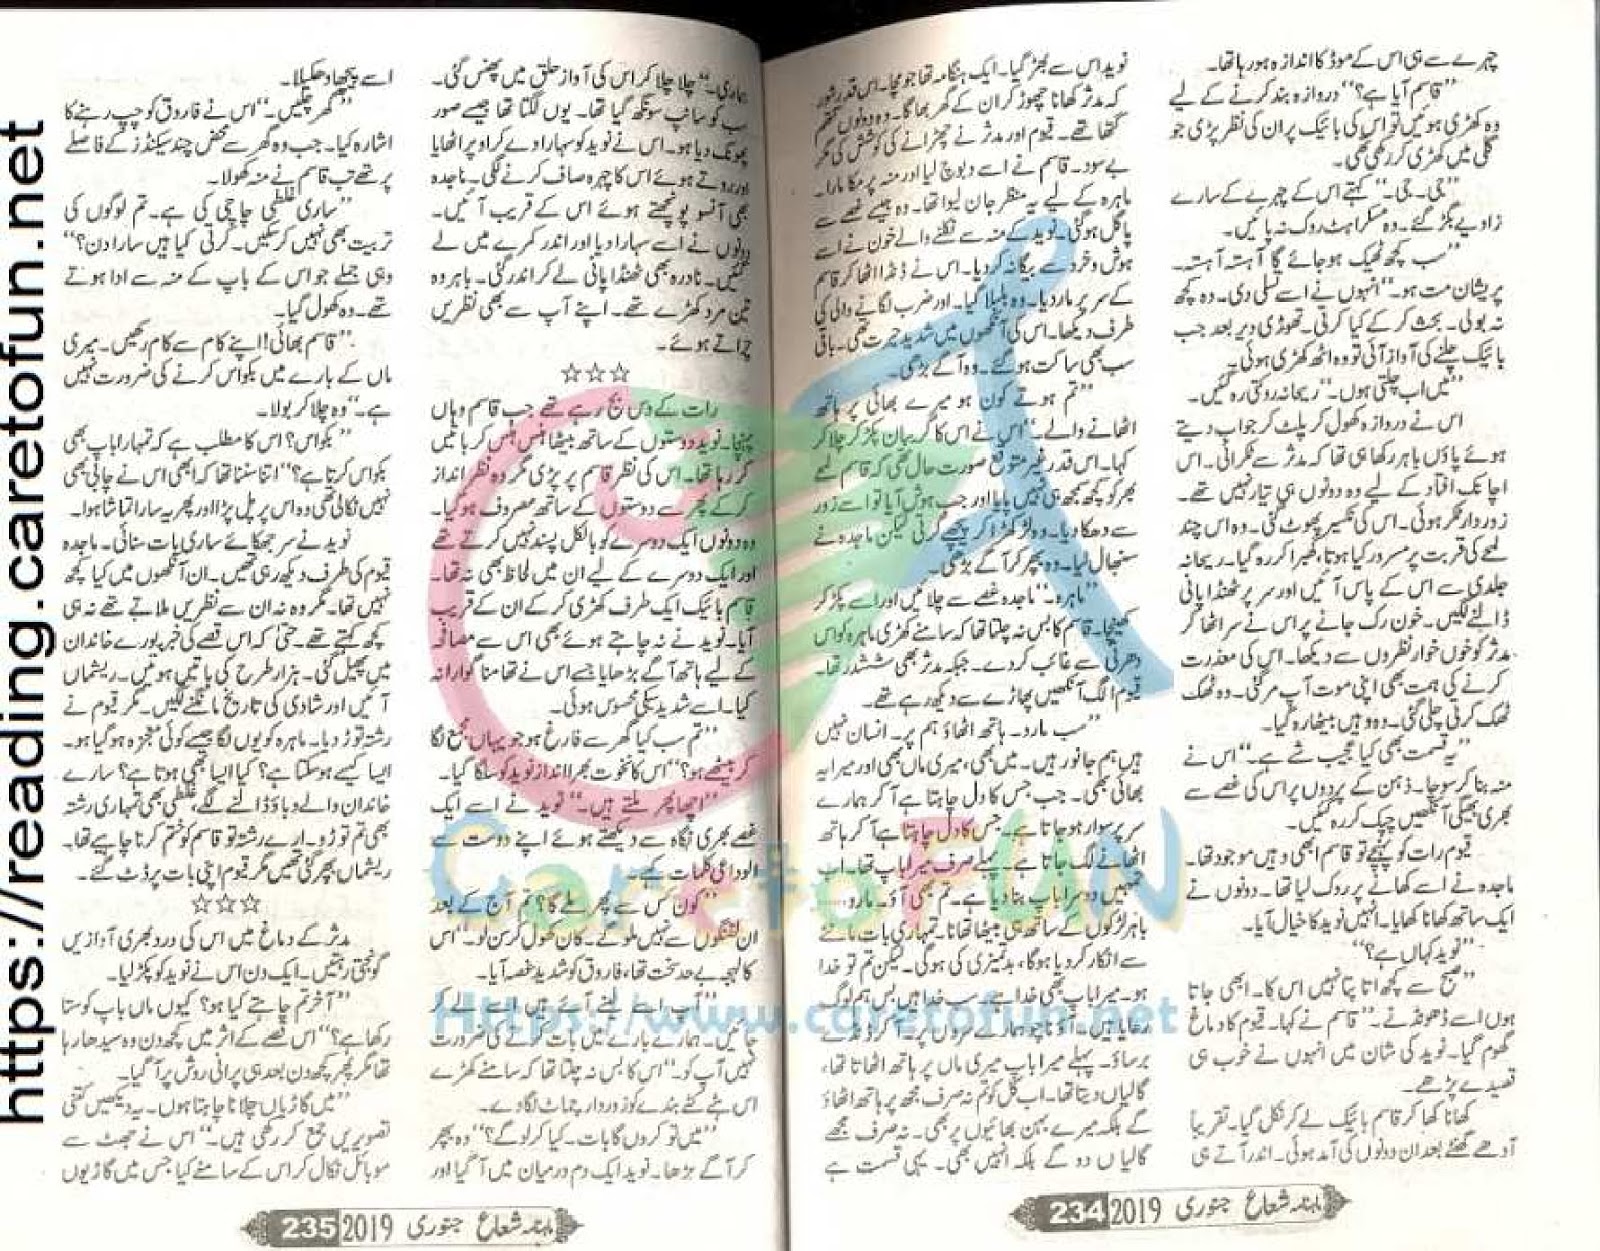 چہرے سے ہی اس کے موڈ کا اندازہ ہو رہا تھا۔
"قاسم آیا ہے؟" دروازہ بند کرنے کے لیے
وہ کھڑی ہوئیں تو اس کی بائیک پر ان کی نظر پڑی جو
گلی میں کھڑی کر رکھی تھی۔
"جی۔ جی۔" کہتے اس کے چہرے کے سارے
زاویے بگڑ گئے۔ وہ مسکراہٹ روک نہ پائیں۔
"سب کچھ ٹھیک ہو جائے گا آہستہ آہستہ۔
پریشان مت ہو۔" انہوں نے اسے تسلی دی۔ وہ کچھ
نہ بولی۔ بحث کر کے کیا کرتی۔ تھوڑی دیر بعد جب
بائیک چلنے کی آواز آئی تو وہ اٹھ کھڑی ہوئی۔
"میں اب چلتی ہوں۔" ریحانہ روکتی رہ گئیں۔
اس نے دروازہ کھول کر پلٹ کر جواب دیتے
ہوئے پاؤں باہر رکھا ہی تھا کہ مدثر سے ٹکرائی۔ اس
اچانک افتاد کے لیے وہ دونوں ہی تیار نہیں تھے۔
زوردار ٹکر ہوئی۔ اس کی نکسیر پھوٹ گئی۔ وہ اس چند
لمحے کی قربت پر مسرور کیا ہوتا، گھبرا کر رہ گیا۔ ریحانہ
جلدی سے اس کے پاس آئیں اور سر پر ٹھنڈا پانی
ڈالنے لگیں۔ خون رک جانے پر اس نے سر اٹھا کر
مدثر کو خوں خوار نظروں سے دیکھا۔ اس کی معذرت
کرنے کی ہمت بھی اپنی موت آپ مر گئی۔ وہ ٹھک
ٹھک کرتی چلی گئی۔ وہ وہیں بیٹھا رہ گیا۔
"یہ قسمت بھی کیا عجیب شے ہے۔" اس نے
منہ بنا کر سوچا۔ ذہن کے پردوں پر اس کی غصے سے
بھری بھیگی آنکھیں چپک کر رہ گئیں۔
قیوم رات کو پہنچے تو قاسم ابھی وہیں موجود تھا۔
ماجدہ نے اسے کھانے پر روک لیا تھا۔ دونوں نے
ایک ساتھ کھانا کھایا۔ انہیں نوید کا خیال آیا۔
"نوید کہاں ہے؟"
"صبح سے کچھ اتا پتا نہیں اس کا۔ ابھی جاتا
ہوں اسے ڈھونڈنے۔" قاسم نے کہا۔ قیوم کا دماغ
گھوم گیا۔ نوید کی شان میں انہوں نے خوب ہی
قصیدے پڑھے۔
کھانا کھا کر قاسم بائیک لے کر نکل گیا۔ تقریباً
آدھے گھنٹے بعد ان دونوں کی آمد ہوئی۔ اندر آتے ہی
نوید اس سے بھڑ گیا۔ ایک ہنگامہ تھا جو مچا۔ اس قدر شور
کہ مدثر کھانا چھوڑ کر ان کے گھر بھاگا۔ وہ دونوں گتھم
گتھا تھے۔ قیوم اور مدثر نے چھڑانے کی کوشش کی مگر
بے سود۔ قاسم نے اسے دبوچ لیا اور منہ پر مکا مارا۔
ماہرہ کے لیے یہ منظر جان لیوا تھا۔ وہ جیسے غصے سے
پاگل ہو گئی۔ نوید کے منہ سے نکلنے والے خون نے اسے
ہوش و خرد سے بیگانہ کر دیا۔ اس نے ڈنڈا اٹھا کر قاسم
کے سر پر مار دیا۔ وہ بلبلا گیا۔ اور ضرب لگانے والی کی
طرف دیکھا۔ اس کی آنکھوں میں شدید حیرت تھی۔ باقی
سب بھی ساکت ہو گئے۔ وہ آگے بڑھی۔
"تم ہوتے کون ہو میرے بھائی پر ہاتھ
اٹھانے والے۔" اس نے اس کا گریبان پکڑ کر چلا کر
کہا۔ اس قدر غیر متوقع صورت حال تھی کہ قاسم لمحے
بھر کو کچھ سمجھ ہی نہیں پایا اور جب ہوش آیا تو اسے زور
سے دھکا دیا۔ وہ لڑکھڑا کر پیچھے گرتی لیکن ماجدہ نے
سنبھال لیا۔ وہ پھر کر آگے بڑھی۔
"ماہرہ۔" ماجدہ غصے سے چلائیں اور اسے پکڑ کر
کھینچا۔ قاسم کا بس نہ چلتا تھا کہ سامنے کھڑی ماہرہ کو اس
دھرتی سے غائب کر دے۔ جبکہ مدثر بھی ششدر تھا۔
قیوم الگ آنکھیں پھاڑے سے دیکھ رہے تھے۔
"سب مارو۔ ہاتھ اٹھاؤ ہم پر۔ انسان نہیں
ہیں ہم جانور ہیں۔ میں بھی، میری ماں بھی اور میرا یہ
بھائی بھی۔ جب جس کا دل چاہتا ہے آ کر ہمارے
سر پر سوار ہو جاتا ہے۔ جس کا دل چاہتا ہے آ کر ہاتھ
اٹھانے لگ جاتا ہے۔ پہلے صرف میرا باپ تھا۔ اب
تمہیں دوسرا باپ بنا دیا ہے۔ تم بھی آؤ۔ مارو......
باہر لڑکوں کے ساتھ ہی بیٹھا تھا نا۔ تمہاری بات ماننے
سے انکار کر دیا ہوگا، بدتمیزی کی ہوگی۔ لیکن تم تو خدا
ہو۔ میرا باپ بھی خدا ہے۔ سب خدا ہیں بس ہم لوگ
رعایا ہیں۔ آؤ ناچو ہمارے سروں پر۔ آ کر کوڑے
برساؤ۔ پہلے میرا باپ میری ماں پر ہاتھ اٹھاتا تھا،
گالیاں دیتا تھا۔ اب کل کو تم نہ صرف مجھ پر ہاتھ اٹھاؤ
گے بلکہ میرے بہن بھائیوں پر بھی۔ نہ صرف مجھے
گالیاں دو گے بلکہ انہیں بھی۔ یہی قسمت ہے
ماہنامہ شعاع جنوری 2019 234
ہماری۔" چلا چلا کر اس کی آواز حلق میں پھنس گئی۔
سب کو سانپ سونگھ گیا تھا۔ یوں لگتا تھا جیسے صور
پھونک دیا ہو۔ اس نے نوید کو سہارا دے کر اوپر اٹھایا
اور روتے ہوئے اس کا چہرہ صاف کرنے لگی۔ ماجدہ
بھی آنسو پونچھتے ہوئے اس کے قریب آئیں۔
دونوں نے اسے سہارا دیا اور اندر کمرے میں لے
گئیں۔ نادرہ بھی ٹھنڈا پانی لے کر اندر گئی۔ باہر وہ
تین مرد کھڑے تھے۔ اپنے آپ سے بھی نظریں
چراتے ہوئے۔
☆☆☆
رات کے دس بج رہے تھے جب قاسم وہاں
پہنچا۔ نوید دوستوں کے ساتھ بیٹھا ہنس ہنس کر باتیں
کر رہا تھا۔ اس کی نظر قاسم پر پڑی مگر وہ نظر انداز
کر کے پھر سے دوستوں کے ساتھ مصروف ہو گیا۔
وہ دونوں ایک دوسرے کو بالکل پسند نہیں کرتے تھے
اور ایک دوسرے کے لیے ان میں لحاظ بھی نہ تھا۔
قاسم بائیک ایک طرف کھڑی کر کے ان کے قریب
آیا۔ نوید نے نہ چاہتے ہوئے بھی اس سے مصافحہ
کے لیے ہاتھ آگے بڑھایا جسے اس نے تھامنا گوارا نہ
کیا۔ اسے شدید سبکی محسوس ہوئی۔
"تم سب کیا گھر سے فارغ ہو جو یہاں مجمع لگا
کر بیٹھے ہو؟" اس کا نخوت بھرا انداز نوید کو سلگا گیا۔
"اچھا پھر ملتے ہیں۔" نوید نے اسے ایک
غصے بھری نگاہ سے دیکھتے ہوئے اپنے دوست سے
الوداعی کلمات کہے۔
"کون کس سے پھر ملے گا؟ تم آج کے بعد
ان لفنگوں سے نہیں ملو گے۔ کان کھول کر سن لو۔" اس
کا لہجہ بے حد سخت تھا، فاروق کو شدید غصہ آیا۔
"آپ اسے لینے آئے ہیں اسے لے کر
جائیں۔ ہمارے بارے میں بات کرنے کی ضرورت
نہیں آپ کو۔" اس کا بس نہ چلتا تھا کہ سامنے کھڑے
اس ہٹے کٹے بندے کو زوردار چماٹ لگا دے۔
"میں تو کروں گا بات۔ کیا کر لو گے؟" وہ بپھر
کر آگے بڑھا۔ نوید ایک دم درمیان میں آ گیا اور
اسے پیچھا دھکیلا۔
"گھر چلیں۔" اس نے فاروق کو چپ رہنے کا
اشارہ کیا۔ جب وہ گھر سے محض چند سیکنڈز کے فاصلے
پر تھے تب قاسم نے منہ کھولا۔
"ساری غلطی چاچی کی ہے۔ تم لوگوں کی
تربیت بھی نہیں کر سکیں۔ کرتی کیا ہیں سارا دن؟"
وہی جملے جو اس کے باپ کے منہ سے ادا ہوتے
تھے۔ وہ کھول گیا۔
"قاسم بھائی! اپنے کام سے کام رکھیں۔ میری
ماں کے بارے میں بکواس کرنے کی ضرورت نہیں
ہے۔" وہ چلا کر بولا۔
"بکواس؟ اس کا مطلب ہے کہ تمہارا باپ بھی
بکواس کرتا ہے؟" اتنا سننا تھا کہ ابھی اس نے چابی بھی
نہیں نکالی تھی وہ اس پر پل پڑا اور پھر یہ سارا تماشا ہوا۔
نوید نے سر جھکائے ساری بات سنائی۔ ماجدہ
قیوم کی طرف دیکھ رہی تھیں۔ ان آنکھوں میں کیا کچھ
نہیں تھا۔ مگر وہ نہ ان سے نظریں ملاتے تھے نہ ہی
کچھ کہتے تھے۔ حتیٰ کہ اس قصے کی خبر پورے خاندان
میں پھیل گئی۔ ہزار طرح کی باتیں ہوئیں۔ ریشماں
آئیں اور شادی کی تاریخ مانگنے لگیں۔ مگر قیوم نے
رشتہ توڑ دیا۔ ماہرہ کو یوں لگا جیسے کوئی معجزہ ہو گیا ہو۔
ایسا کیسے ہو سکتا ہے؟ کیا ایسا بھی ہوتا ہے؟ سارے
خاندان والے دباؤ ڈالنے لگے، غلطی بھی تمہاری رشتہ
بھی تم توڑو۔ ارے رشتہ تو قاسم کو ختم کرنا چاہیے تھا۔
ریشماں بپھر گئی تھیں مگر قیوم اپنی بات پر ڈٹ گئے۔
☆☆☆
مدثر کے دماغ میں اس کی درد بھری آوازیں
گونجتی رہتیں۔ ایک دن اس نے نوید کو پکڑ لیا۔
"آخر تم چاہتے کیا ہو؟ کیوں ماں باپ کو ستا
رکھا ہے؟" اس قصے کے اثر میں کچھ دن وہ سیدھا رہا
تھا مگر پھر کچھ دن بعد ہی پرانی روش پر آ گیا۔
"میں گاڑیاں چلانا چاہتا ہوں۔ یہ دیکھیں کتنی
تصویریں جمع کر رکھی ہیں۔" اس نے جھٹ سے
موبائل نکال کر اس کے سامنے کیا جس میں گاڑیوں
ماہنامہ شعاع جنوری 2019 235
https://reading.caretofun.net
CaretoFUN
Https://www.caretofun.net